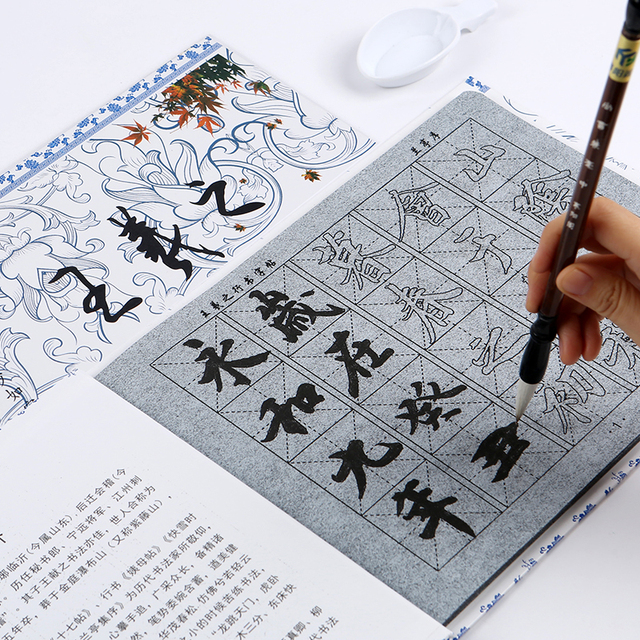 王羲之
王羲之行书字帖
永和九年
歲在癸丑
暮春之初
會于
山陰
郡临沂(今属山东)，后迁会稽(今
历任秘书郎、宁远将军、江州刺
其子王献之书法亦佳，世人合称为
葬于金庭瀑布山(又称紫藤山)，
十七帖》 行书《姨母帖》《快雪时
兰亭集序》为历代书法家所敬仰，
心摹手追，广采众长，备精诸
然，笔势委婉含蓄，遒美健
华茂春松，仿佛兮若轻云
龙跳天门，虎卧
小的时候苦练书法，
木三分、东床快
真卿、柳
代书法